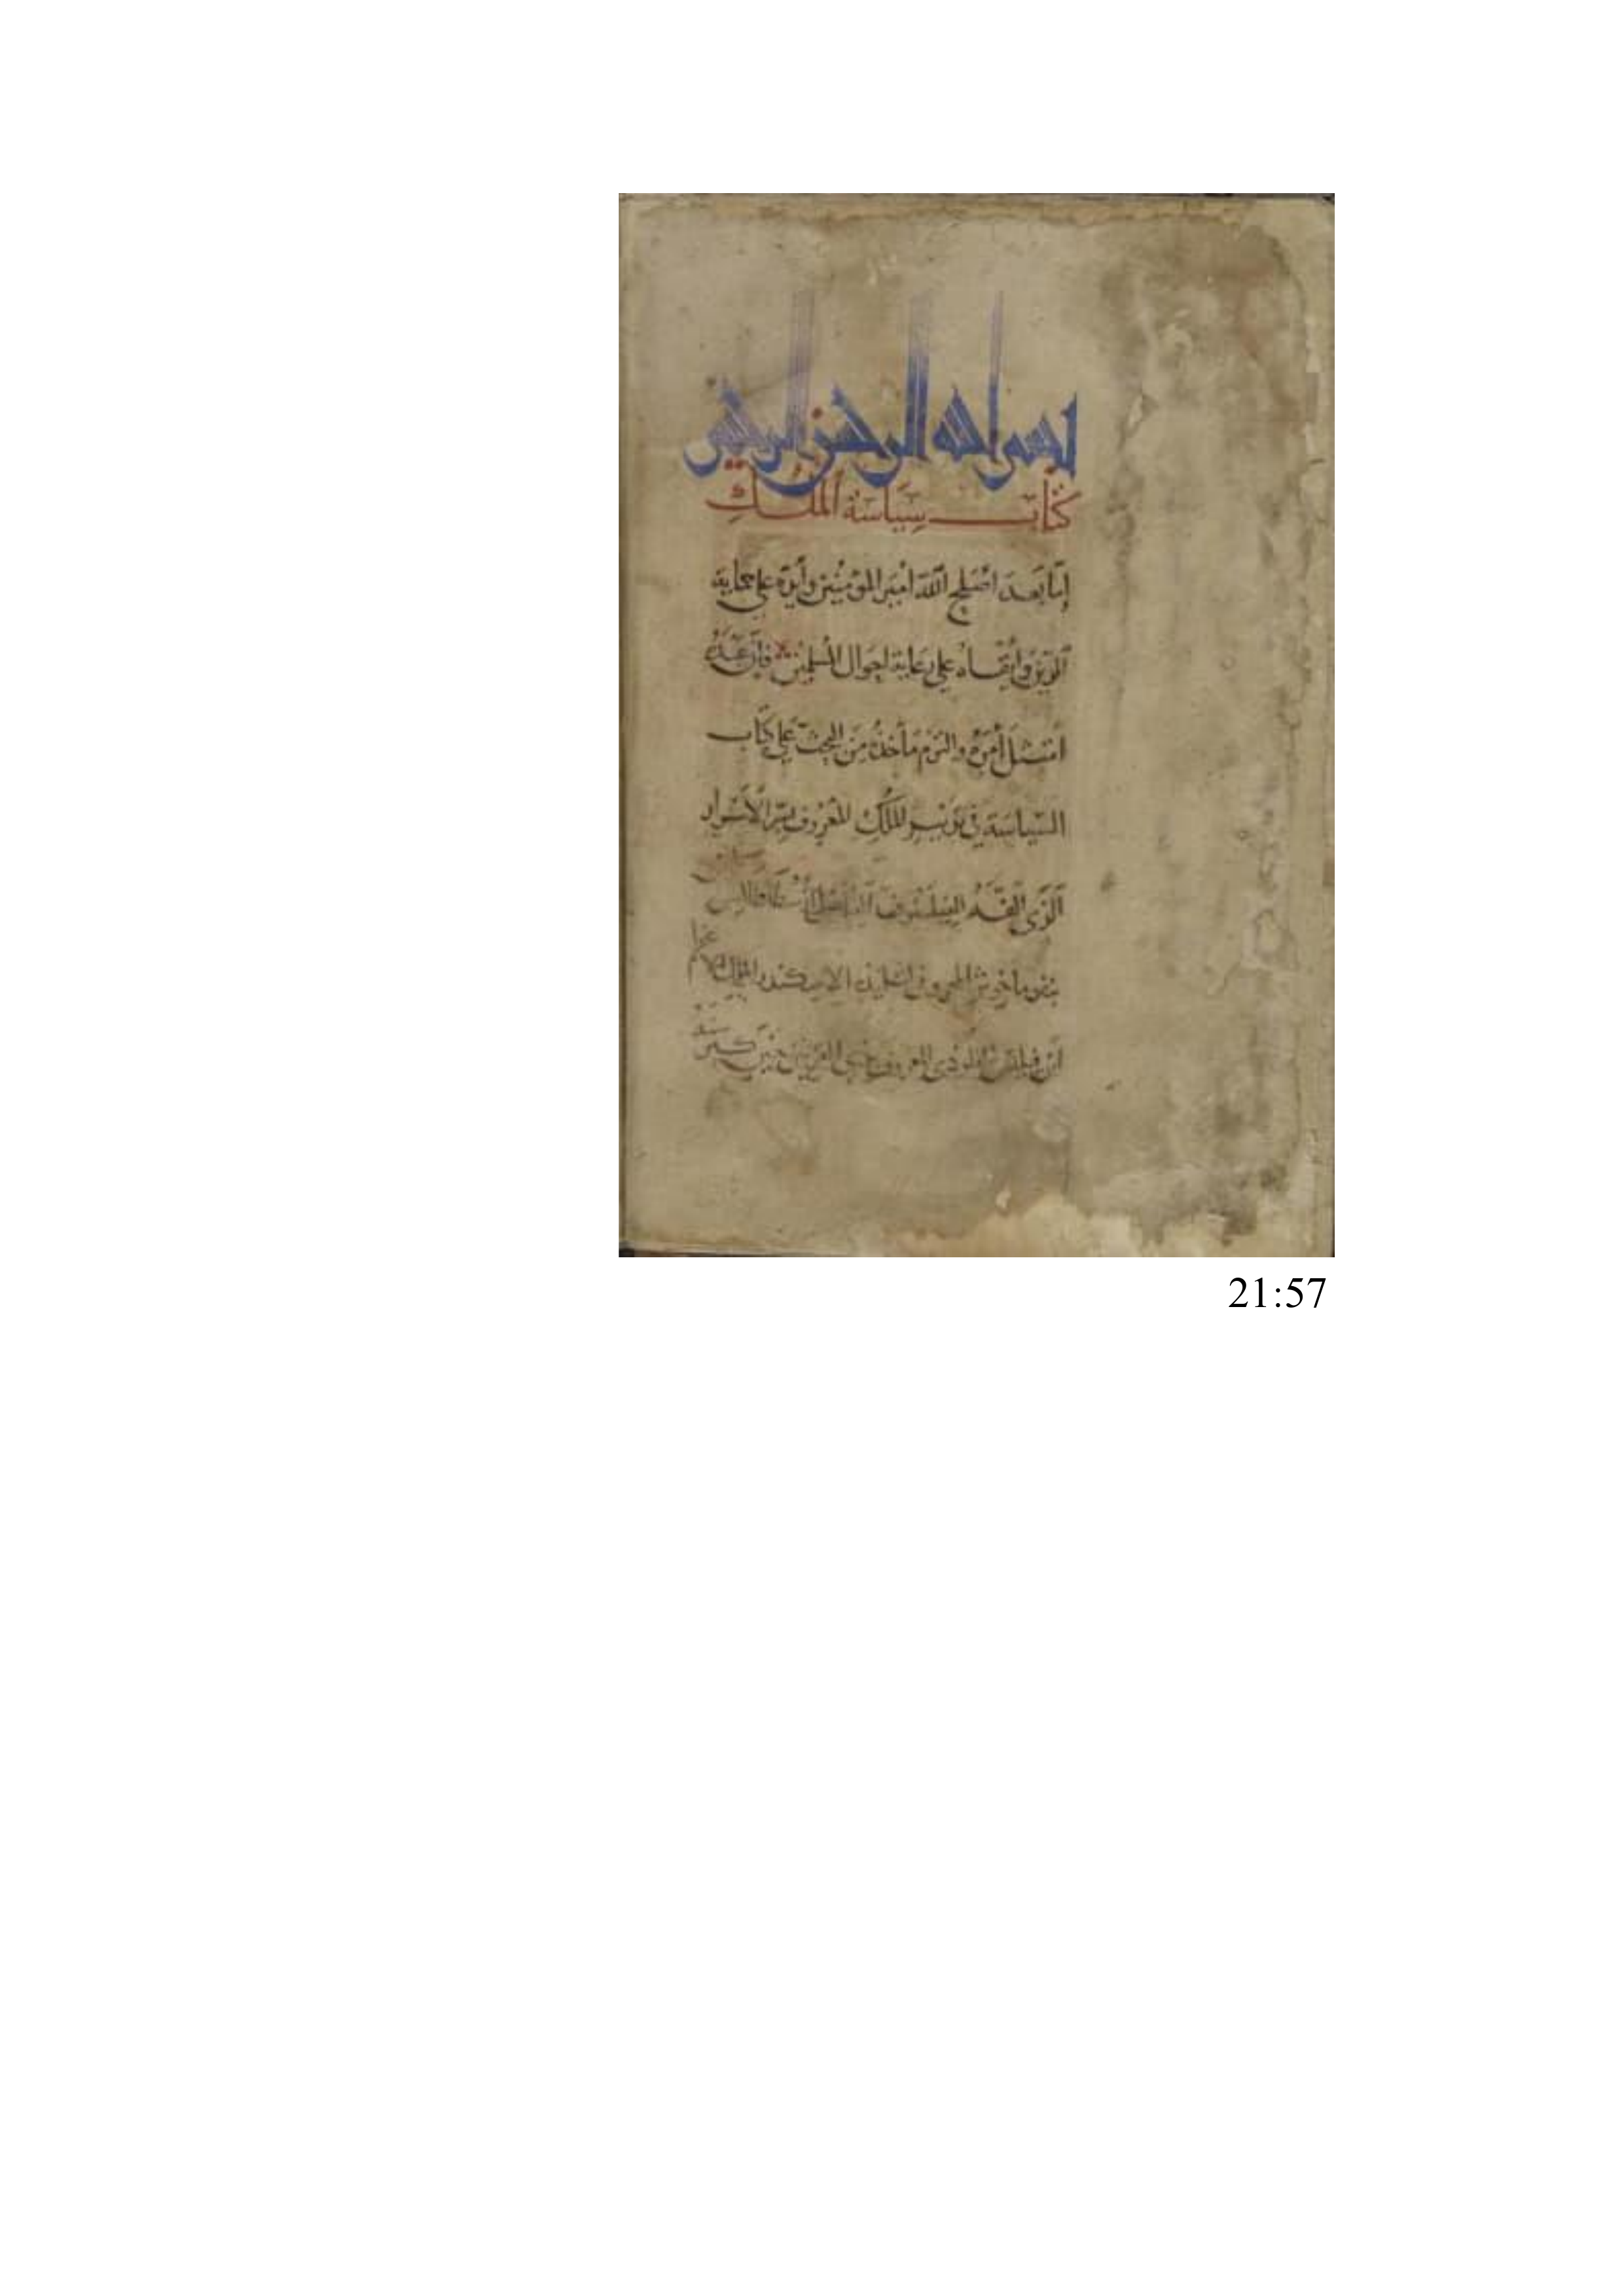 بسم الله الرحمن الرحيم
كتاب سياسة الملك
امّا بعد اصلح الله امير المؤمنين وأيده على حماية
الدين وأبقاه على رعاية احوال المسلمين فإن عبده
امتثل أمره والتزم مأخذه من البحث على كتاب
السياسة في تدبير الملك المعروف بسر الأسرار
الذي الفه الفيلسوف الفاضل أرسطاطاليس
بن نقوماخوش لتلميذه الاسكندر الملك
ابن فيلقوس المعروف
21:57